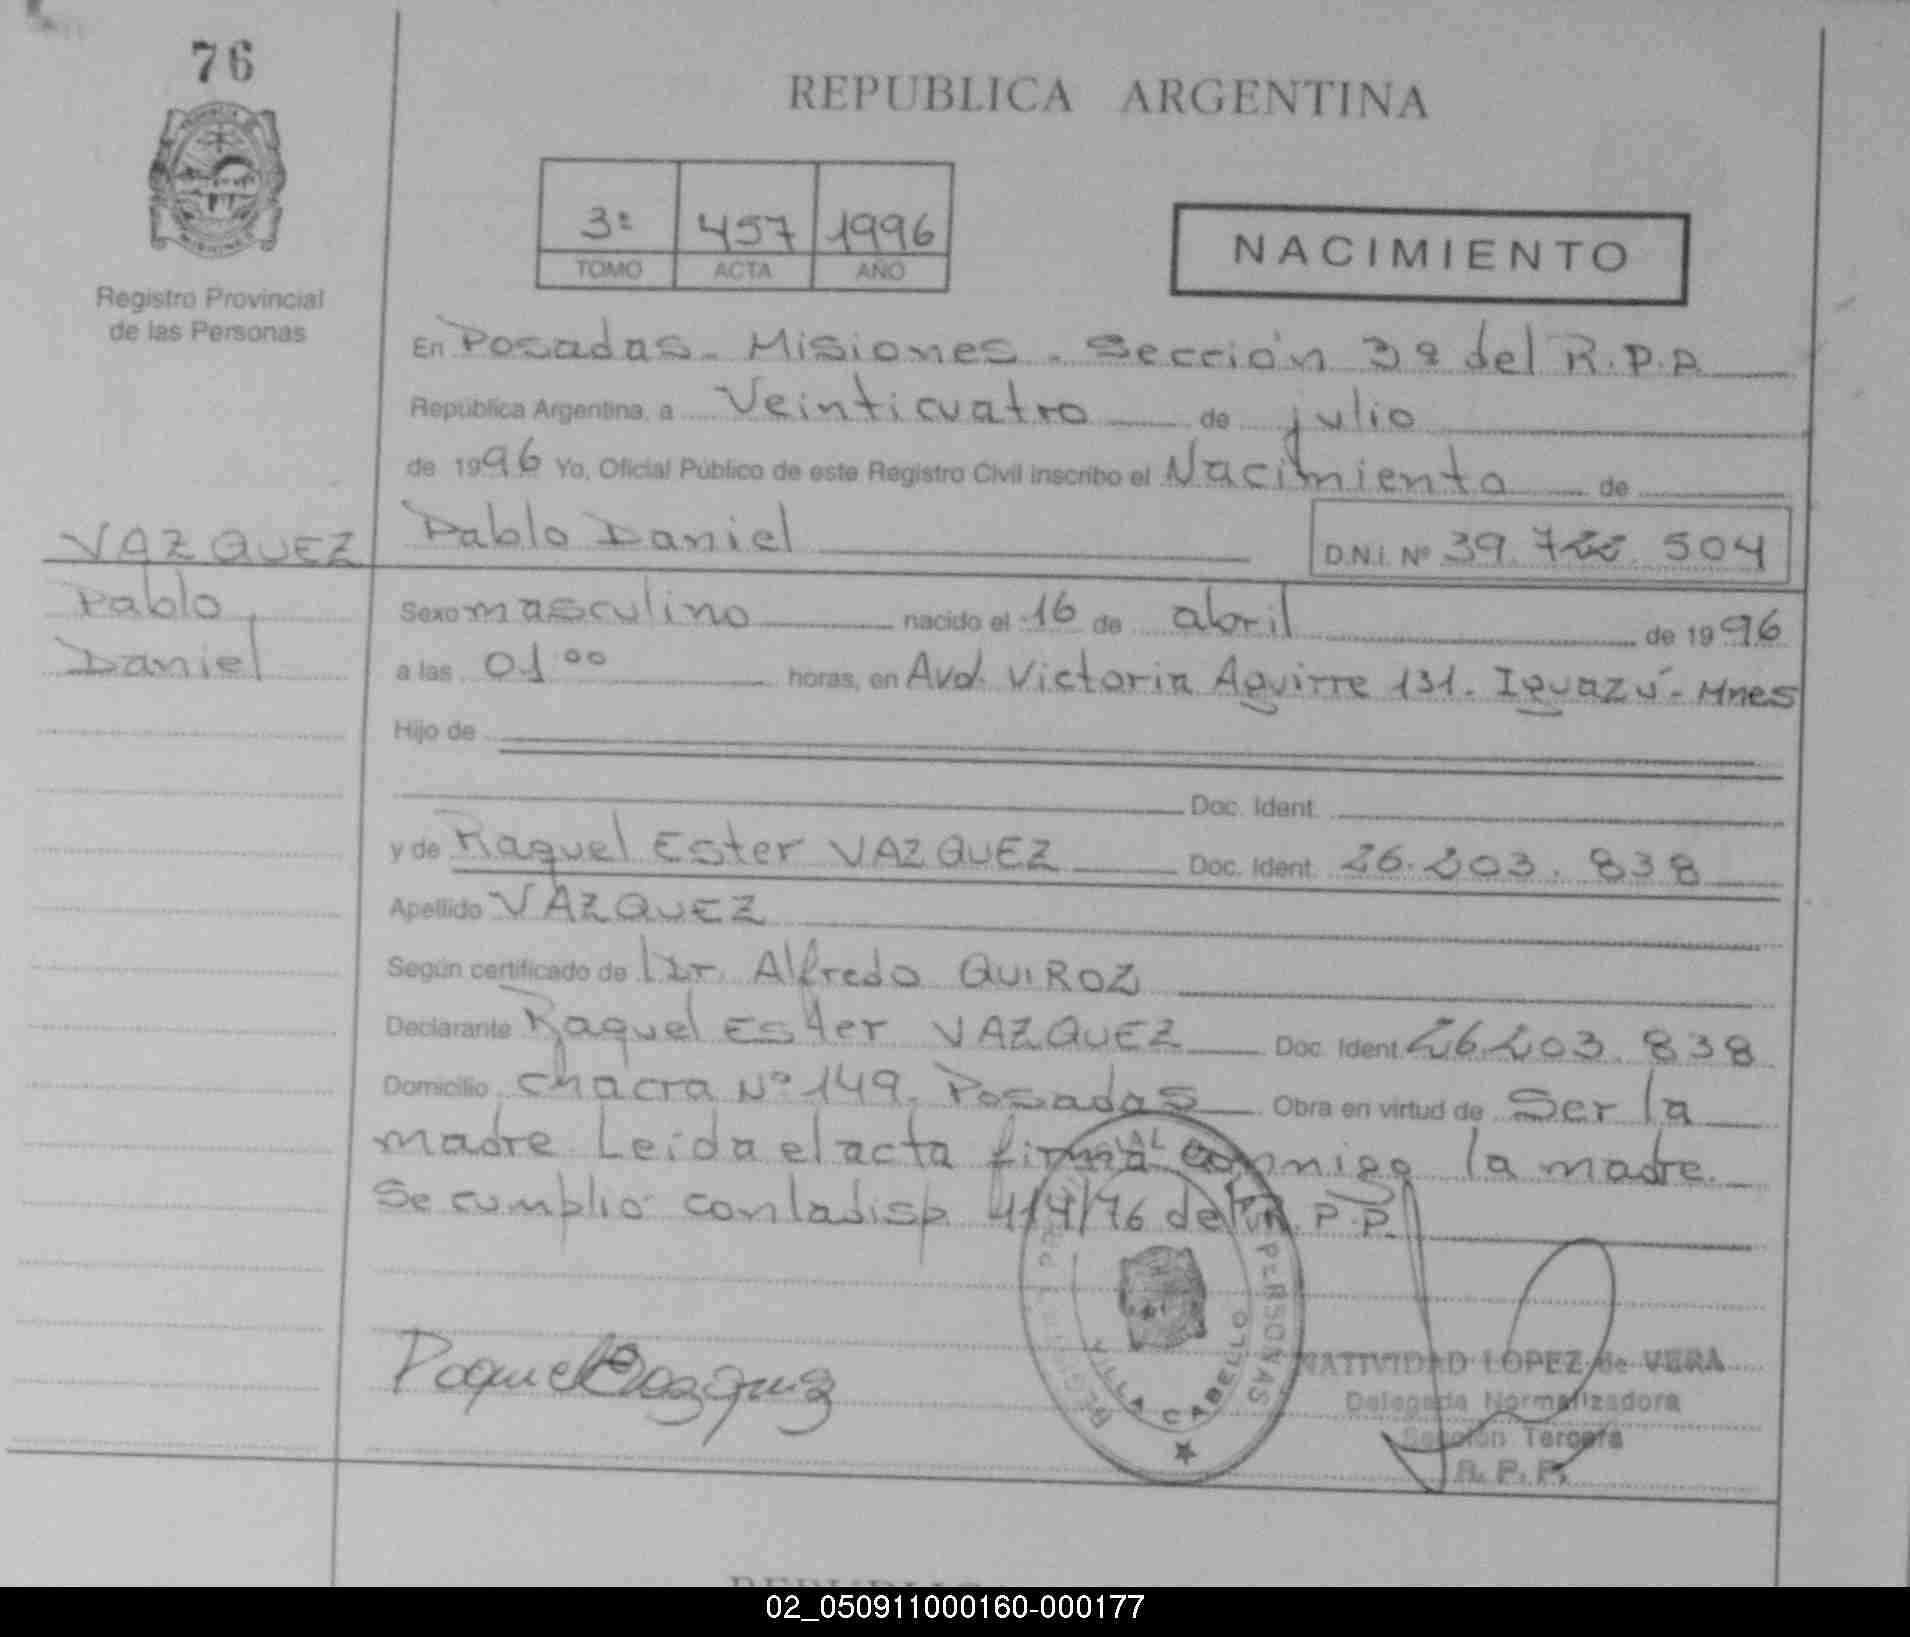 76
REPUBLICA ARGENTINA
3ª 457 1996
TOMO ACTA AÑO
NACIMIENTO
Registro Provincial
de las Personas
En Posadas - Misiones - Sección 3ª del R.P.P.
República Argentina, a Veinticuatro de julio
de 1996 Yo, Oficial Público de este Registro Civil inscribo el Nacimiento de
VAZQUEZ Pablo Daniel D.N.I. Nº 39. 504
Pablo
Daniel
Sexo masculino nacido el 16 de abril de 1996
a las 01 00 horas, en Avd. Victoria Aguirre 131. Iguazú - Mnes
Hijo de
Doc. Ident.
y de Raquel Ester VAZQUEZ Doc. Ident. 26.203.838
Apellido VAZQUEZ
Según certificado de Dr. Alfredo QUIROZ
Declarante Raquel Ester VAZQUEZ Doc. Ident. 26.203.838
Domicilio chacra Nº 149. Posadas Obra en virtud de Ser la
madre Leida el acta firma conmigo la madre.
Se cumplio con la disp. 414/76 del R.P.P.
Raquel Vazquez
REGISTRO PERSONAS
VILLA CABELLO
NATIVIDAD LOPEZ de VERA
Delegada Normalizadora
Sección Tercera
R. P. P.
02_050911000160-000177